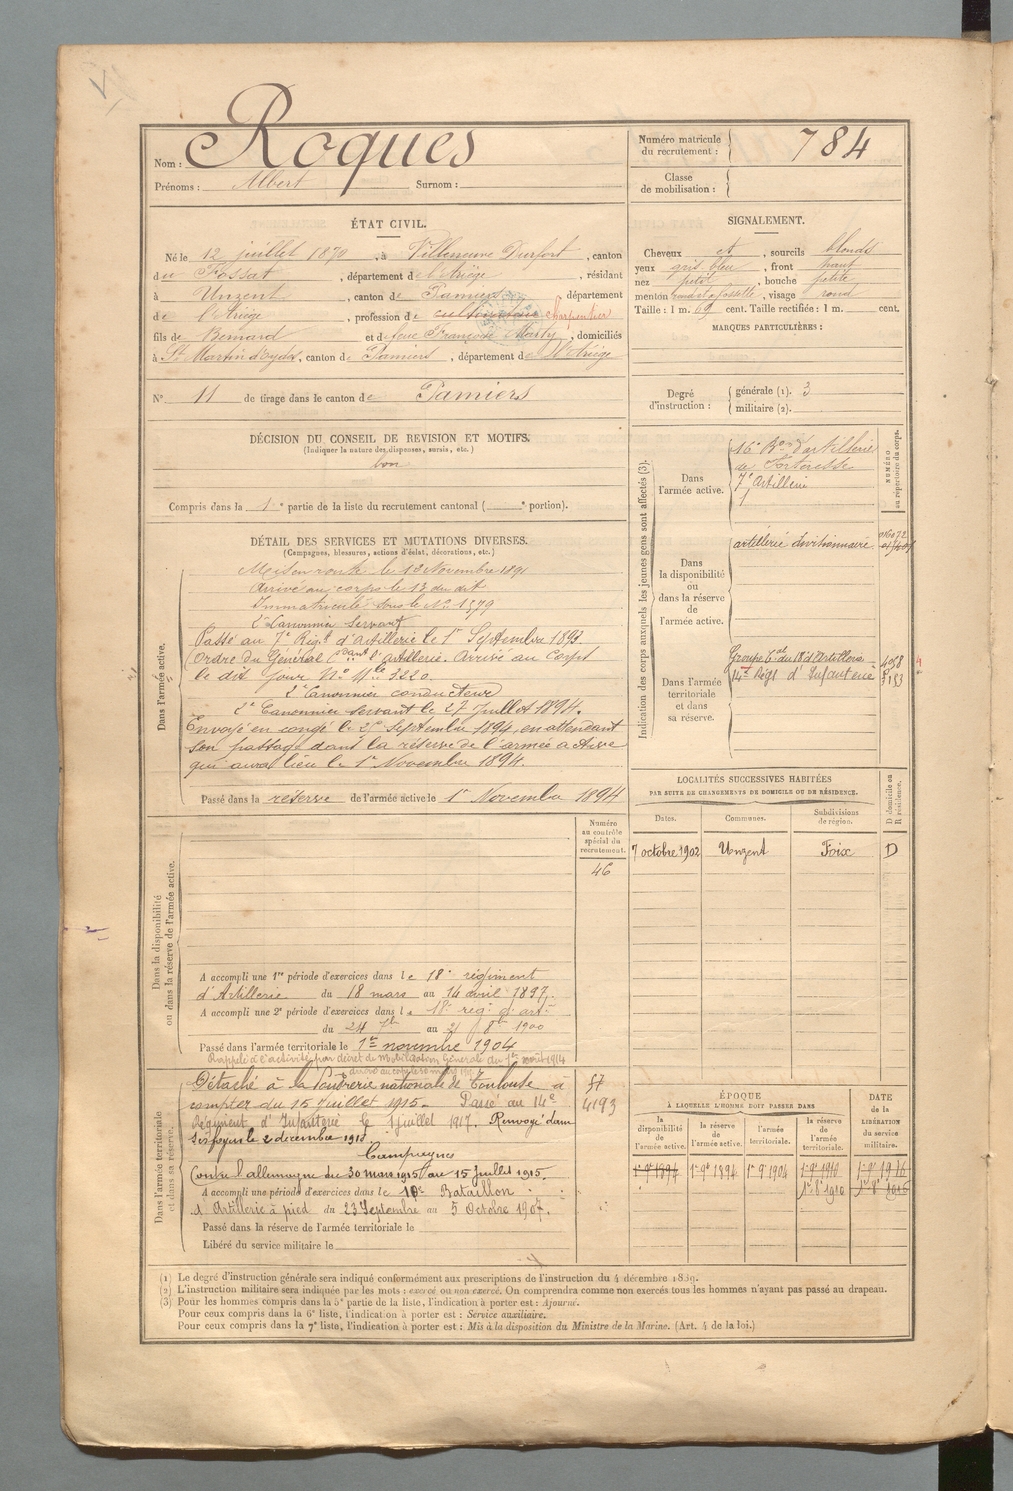 Nom : Roques
Prénoms : Albert Surnom :
Numéro matricule du recrutement : 784
Classe de mobilisation :
ÉTAT CIVIL.
Né le 12 juillet 1870, à Villeneuve Durfort, canton
du Fossat, département de l'Ariège, résidant
à Unzent, canton de Pamiers, département
de l'Ariège, profession de cultivateur charpentier
fils de Bernard et de feue Françoise Marty, domiciliés
à St Martin d'Oydes, canton de Pamiers, département de l'Ariège
N° 11 de tirage dans le canton de Pamiers
SIGNALEMENT.
Cheveux et, sourcils blonds
yeux gris bleu, front haut
nez petit, bouche petite
menton rond et à fossette, visage rond
Taille : 1 m. 69 cent. Taille rectifiée : 1 m. cent.
MARQUES PARTICULIÈRES :
Degré d'instruction : générale (1). 3
militaire (2).
DÉCISION DU CONSEIL DE REVISION ET MOTIFS.
(Indiquer la nature des dispenses, sursis, etc.)
bon
Compris dans la 1e partie de la liste du recrutement cantonal ( e portion).
DÉTAIL DES SERVICES ET MUTATIONS DIVERSES.
(Campagnes, blessures, actions d'éclat, décorations, etc.)
Dans l'armée active.
Mis en route le 13 Novembre 1891
Arrivé au corps le 13 du dit
Immatriculé sous le N° 1579
2e Canonnier servant
Passé au 7e Régt d'Artillerie le 1er Septembre 1893.
(Ordre du Général Cdant l'artillerie. Arrivé au Corps
le dit jour N° Mle 3220.
2e Canonnier conducteur
2e Canonnier servant le 27 Juillet 1894.
Envoyé en congé le Septembre 1894, en attendant
son passage dans la réserve de l'armée active
qui aura lieu le 1er Novembre 1894.
Passé dans la réserve de l'armée active le 1er Novembre 1894
Indication des corps auxquels les jeunes gens sont affectés (3).
NUMÉRO au répertoire du corps.
Dans l'armée active.
16e Bon d'artillerie
de Forteresse
7e Artillerie
Dans la disponibilité ou dans la réserve de l'armée active.
artillerie divisionnaire.
Dans l'armée territoriale et dans sa réserve.
Groupe tal du 18e d'Artillerie 4058
14e Régt d'Infanterie
LOCALITÉS SUCCESSIVES HABITÉES
PAR SUITE DE CHANGEMENTS DE DOMICILE OU DE RÉSIDENCE.
D domicile ou R résidence.
Dates. Communes. Subdivisions de région.
7 octobre 1902 Unzent Foix D
Dans la disponibilité ou dans la réserve de l'armée active.
Numéro au contrôle spécial du recrutement.
46
A accompli une 1re période d'exercices dans le 18e régiment
d'Artillerie du 18 mars au 14 avril 1897.
A accompli une 2e période d'exercices dans le 18e rég. d'art.
du 24 7bre au 21 8bre 1900
Passé dans l'armée territoriale le 1er novembre 1904
Rappelé à l'activité par décret de Mobilisation Générale du 1er août 1914
Dans l'armée territoriale et dans sa réserve.
Détaché à la Poudrerie nationale de Toulouse à
compter du 15 Juillet 1915. Passé au 14e
Régiment d'Infanterie le 1 juillet 1917. Renvoyé dans
ses foyers le 2 décembre 1918.
4193
Campagnes
Contre l'Allemagne du 30 mars 1915 au 15 Juillet 1915.
A accompli une période d'exercices dans le 10e Bataillon
d'Artillerie à pied du 23 Septembre au 5 Octobre 1907.
Passé dans la réserve de l'armée territoriale le
Libéré du service militaire le
ÉPOQUE
À LAQUELLE L'HOMME DOIT PASSER DANS
DATE de la LIBÉRATION du service militaire.
la disponibilité de l'armée active.
la réserve de l'armée active.
l'armée territoriale.
la réserve de l'armée territoriale.
1er 9bre 1894 1er 9bre 1894 1er 9bre 1904 1er 9bre 1910 1er 9bre 1916
1er 8bre 1910 1er 8bre 1916
(1) Le degré d'instruction générale sera indiqué conformément aux prescriptions de l'instruction du 4 décembre 1889.
(2) L'instruction militaire sera indiquée par les mots : exercé ou non exercé. On comprendra comme non exercés tous les hommes n'ayant pas passé au drapeau.
(3) Pour les hommes compris dans la 5e partie de la liste, l'indication à porter est : Ajourné.
Pour ceux compris dans la 6e liste, l'indication à porter est : Service auxiliaire.
Pour ceux compris dans la 7e liste, l'indication à porter est : Mis à la disposition du Ministre de la Marine. (Art. 4 de la loi.)